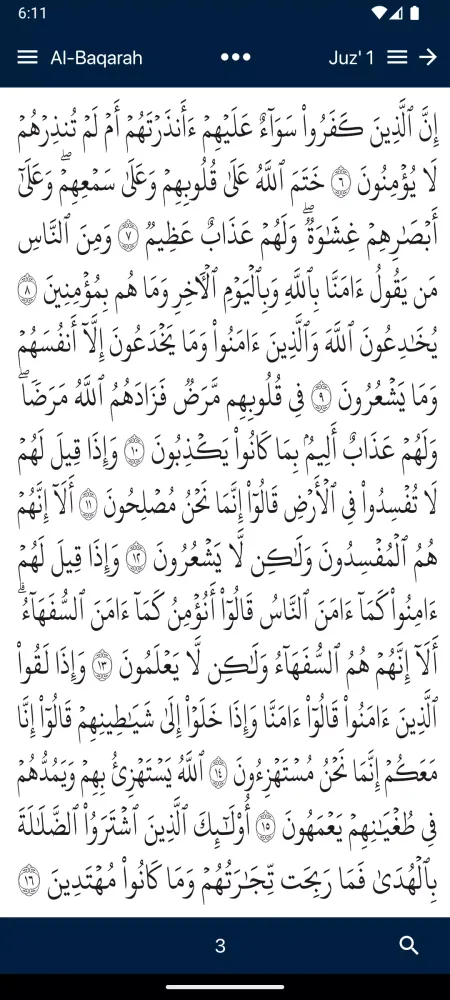 6:11
Al-Baqarah ••• Juz' 1
إِنَّ ٱلَّذِينَ كَفَرُوا۟ سَوَآءٌ عَلَيْهِمْ ءَأَنذَرْتَهُمْ أَمْ لَمْ تُنذِرْهُمْ
لَا يُؤْمِنُونَ ٦ خَتَمَ ٱللَّهُ عَلَىٰ قُلُوبِهِمْ وَعَلَىٰ سَمْعِهِمْ ۖ وَعَلَىٰٓ
أَبْصَـٰرِهِمْ غِشَـٰوَةٌ ۖ وَلَهُمْ عَذَابٌ عَظِيمٌ ٧ وَمِنَ ٱلنَّاسِ
مَن يَقُولُ ءَامَنَّا بِٱللَّهِ وَبِٱلْيَوْمِ ٱلْـَٔاخِرِ وَمَا هُم بِمُؤْمِنِينَ ٨
يُخَـٰدِعُونَ ٱللَّهَ وَٱلَّذِينَ ءَامَنُوا۟ وَمَا يَخْدَعُونَ إِلَّآ أَنفُسَهُمْ
وَمَا يَشْعُرُونَ ٩ فِى قُلُوبِهِم مَّرَضٌ فَزَادَهُمُ ٱللَّهُ مَرَضًا ۖ
وَلَهُمْ عَذَابٌ أَلِيمٌۢ بِمَا كَانُوا۟ يَكْذِبُونَ ١٠ وَإِذَا قِيلَ لَهُمْ
لَا تُفْسِدُوا۟ فِى ٱلْأَرْضِ قَالُوٓا۟ إِنَّمَا نَحْنُ مُصْلِحُونَ ١١ أَلَآ إِنَّهُمْ
هُمُ ٱلْمُفْسِدُونَ وَلَـٰكِن لَّا يَشْعُرُونَ ١٢ وَإِذَا قِيلَ لَهُمْ
ءَامِنُوا۟ كَمَآ ءَامَنَ ٱلنَّاسُ قَالُوٓا۟ أَنُؤْمِنُ كَمَآ ءَامَنَ ٱلسُّفَهَآءُ ۗ
أَلَآ إِنَّهُمْ هُمُ ٱلسُّفَهَآءُ وَلَـٰكِن لَّا يَعْلَمُونَ ١٣ وَإِذَا لَقُوا۟
ٱلَّذِينَ ءَامَنُوا۟ قَالُوٓا۟ ءَامَنَّا وَإِذَا خَلَوْا۟ إِلَىٰ شَيَـٰطِينِهِمْ قَالُوٓا۟ إِنَّا
مَعَكُمْ إِنَّمَا نَحْنُ مُسْتَهْزِءُونَ ١٤ ٱللَّهُ يَسْتَهْزِئُ بِهِمْ وَيَمُدُّهُمْ
فِى طُغْيَـٰنِهِمْ يَعْمَهُونَ ١٥ أُو۟لَـٰٓئِكَ ٱلَّذِينَ ٱشْتَرَوُا۟ ٱلضَّلَـٰلَةَ
بِٱلْهُدَىٰ فَمَا رَبِحَت تِّجَـٰرَتُهُمْ وَمَا كَانُوا۟ مُهْتَدِينَ ١٦
3